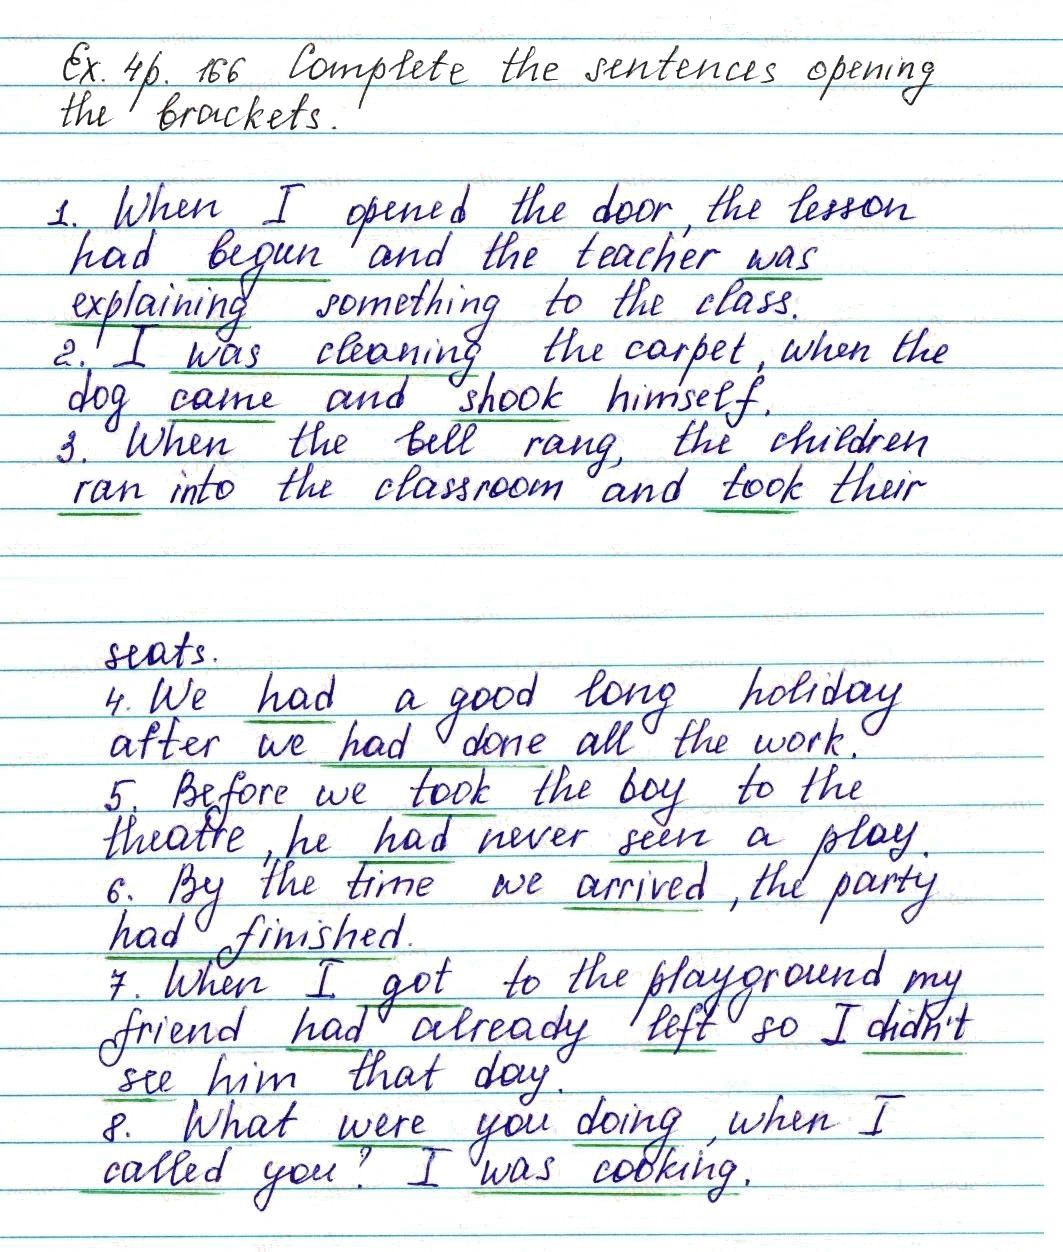 Ex. 4p. 166 Complete the sentences opening
the brackets.
1. When I opened the door, the lesson
had begun and the teacher was
explaining something to the class.
2. I was cleaning the carpet, when the
dog came and shook himself.
3. When the bell rang, the children
ran into the classroom and took their
seats.
4. We had a good long holiday
after we had done all the work.
5. Before we took the boy to the
theatre, he had never seen a play.
6. By the time we arrived, the party
had finished.
7. When I got to the playground my
friend had already left so I didn't
see him that day.
8. What were you doing, when I
called you? I was cooking.